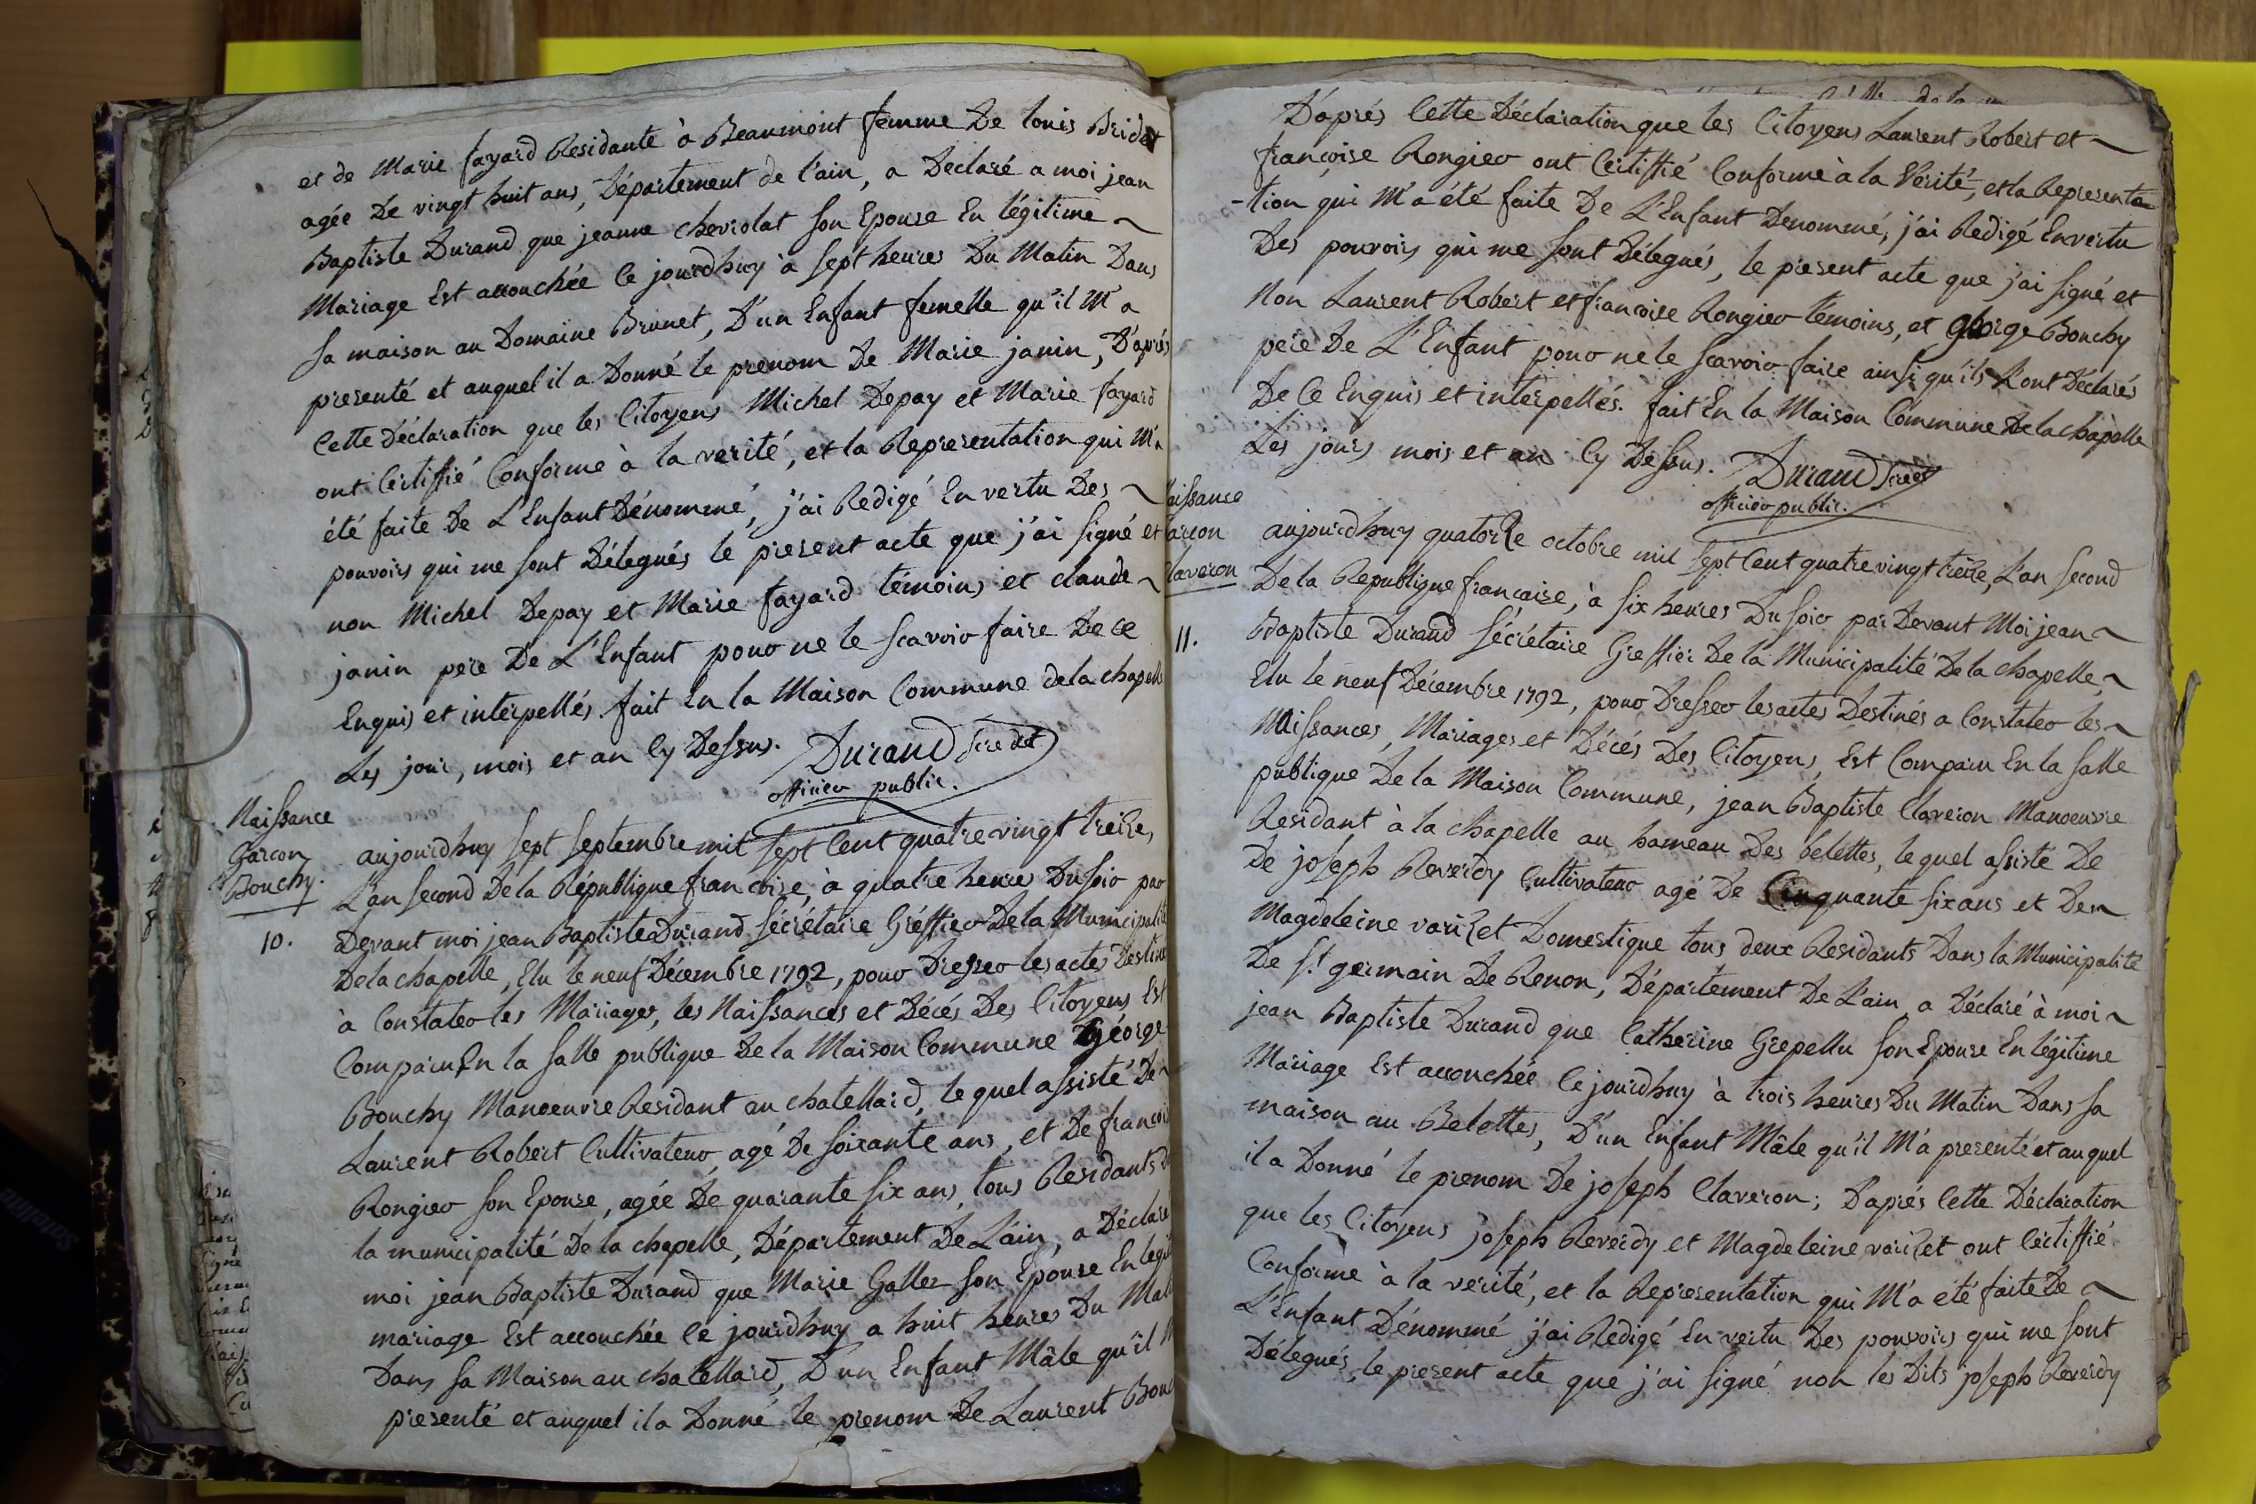 et de Marie fayard Residante à Beaumont femme De louis Bridet
agée De vingt huit ans, Département de l'ain, a Declaré a moi jean
Baptiste Durand que jeanne chevrolat son Epouse En légitime
Mariage Est accouchée ce jourdhuy à sept heures Du Matin Dans
sa maison au Domaine Brunet, D'un Enfant femelle qu'il M'a
presenté et auquel il a Donné le prenom De Marie janin, D'aprés
Cette Déclaration que les Citoyens Michel Depay et Marie fayard
ont Certiffié Conforme à la verité, et la Representation qui M'a
été faite De L'Enfant Dénommé, j'ai Redigé En vertu Des
pouvoirs qui me sont Délegués le present acte que j'ai signé et
non Michel Depay et Marie fayard témoins et claude
janin pere De L'Enfant pour ne le scavoir faire De ce
Enquis et interpellés. fait En la Maison Commune de la chapelle
Les jour, mois et an Cy Dessus. Durand
officier public.
Naissance
Garcon
Bouchy.
10.
aujourdhuy sept septembre mil sept Cent quatre vingt treize,
L'an second De la République francoise, à quatre heures Du soir par
Devant moi jean Baptiste Durand Sécrétaire Gréffier De la Municipalité
De la chapelle, Elu le neuf Décembre 1792, pour Dresser les actes Destinés
à Constater les Mariages, les Naissances et Décés Des Citoyens Est
Comparu En la salle publique De la Maison Commune géorge
Bouchy Manoeuvre Residant au chatellard, le quel assisté De
Laurent Robert Cultivateur, agé De soixante ans, et De francoise
Rongier son Epouse, agée De quarante six ans, tous Residants
la municipalité De la chapelle, Département De L'ain, a Déclaré
moi jean Baptiste Durand que Marie Gallez son Epouse En
mariage Est accouchée ce jourdhuy a huit heures Du
Dans sa Maison au chatellard, D'un Enfant Mâle qu'il
presenté et auquel il a Donné le prenom De Laurent
D'aprés Cette Déclaration que les Citoyens Laurent Robert et
françoise Rongier ont Certiffié Conforme à la Vérité, et la Representa
-tion qui M'a été faite De L'Enfant Denommé, j'ai Redigé En vertu
Des pouvoirs qui me sont Délegués, le present acte que j'ai signé et
Non Laurent Robert et francoise Rongier témoins, et George Bouchy
pere De L'Enfant pour ne le scavoir faire ainsi qu'ils L'ont Déclarés
De Ce Enquis et interpellés. fait En la Maison Commune De la chapelle
Les jours mois et an Cy Dessus. Durand
officier public.
aissance
arcon
laveron
11.
aujourdhuy quatorze octobre mil sept Cent quatre vingt treize, L'an second
De la Republique francaise, à six heures Du soir par Devant Moi jean
Baptiste Durand Sécrétaire Greffier De la Municipalité De la chapelle,
Elu le neuf Décembre 1792, pour Dresser les actes Destinés a Constater les
Naissances, Mariages et Décés Des Citoyens, Est Comparu En la salle
publique De la Maison Commune, jean Baptiste Claveron Manoeuvre
Residant à la chapelle au hameau Des belettes, le quel assisté De
De joseph Reverdy Cultivateur agé De Cinquante six ans et De
Magdeleine varizet Domestique tous deux Residants Dans la Municipalité
De St. germain De Renon, Département De L'ain a Déclaré à moi
jean Baptiste Durand que Catherine Grepellu son Epouse En légitime
Mariage Est accouchée Ce jourdhuy à trois heures Du Matin Dans sa
maison au Belettes, D'un Enfant Mâle qu'il M'a presenté et auquel
il a Donné le prenom De joseph Claveron; D'aprés Cette Déclaration
que les Citoyens joseph Reverdy et Magdeleine varizet ont Certiffié
Conforme à la verité, et la Representation qui M'a été faite De
L'Enfant Dénommé j'ai Redigé En vertu Des pouvoirs qui me sont
Délegués, le present acte que j'ai signé non les Dits joseph Reverdy